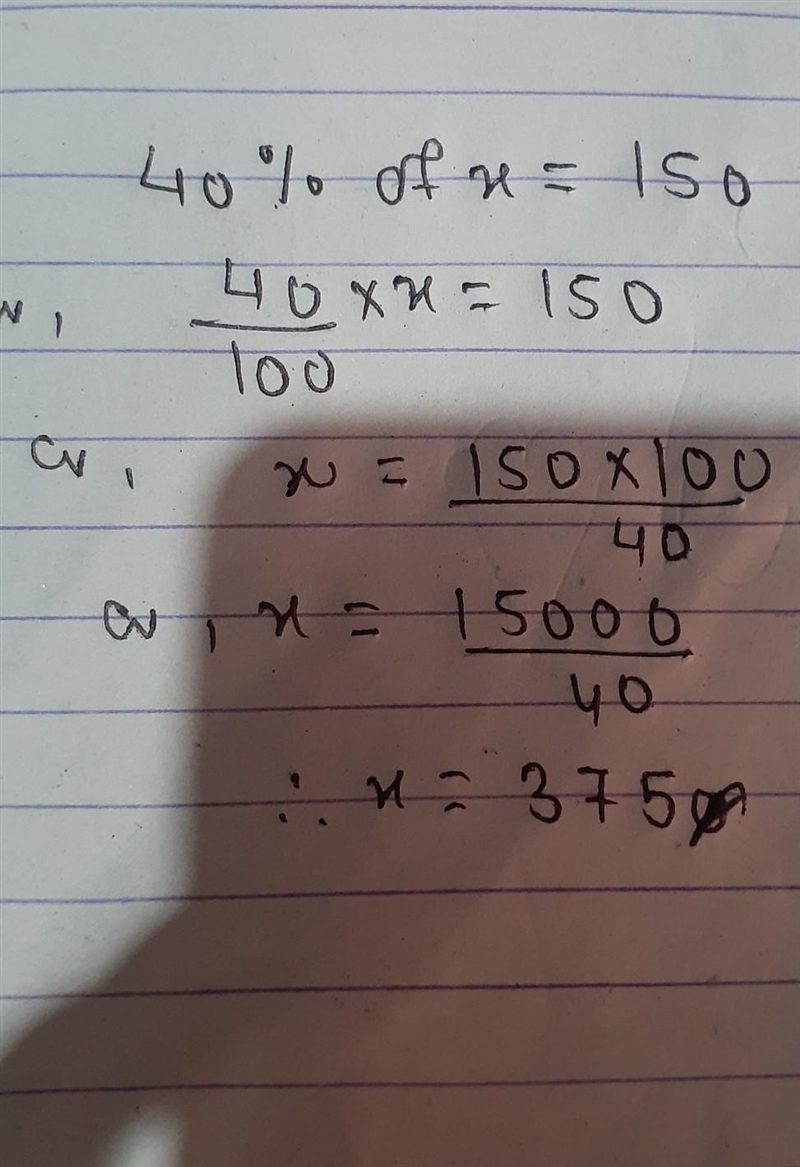 40% of x = 150
40/100 × x = 150
or, x = 150 × 100/40
or, x = 15000/40
∴ x = 375